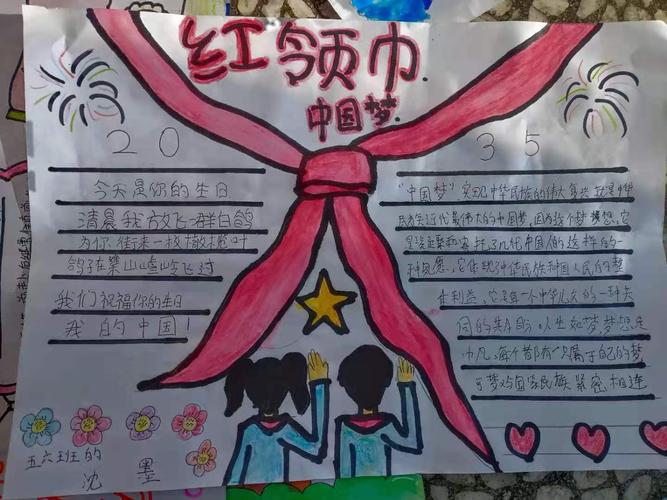 红领巾
中国梦
20 35
今天是你的生日
清晨我放飞一群白鸽
为你衔来一枚橄榄叶
鸽子在崇山峻岭飞过
我们祝福你的生日
我的中国！
"中国梦"实现中华民族的伟大复兴就是中华
民族近代最伟大的中国梦，因为这个梦想，它
是凝聚和寄托了几代中国人的这样的一
种夙愿，它体现中华民族和中国人民的
体利益，它是每一个中华儿女的一种共
同的
每个都有一个属于自己的梦
梦对国家民族紧密相连
五六班的
沈墨